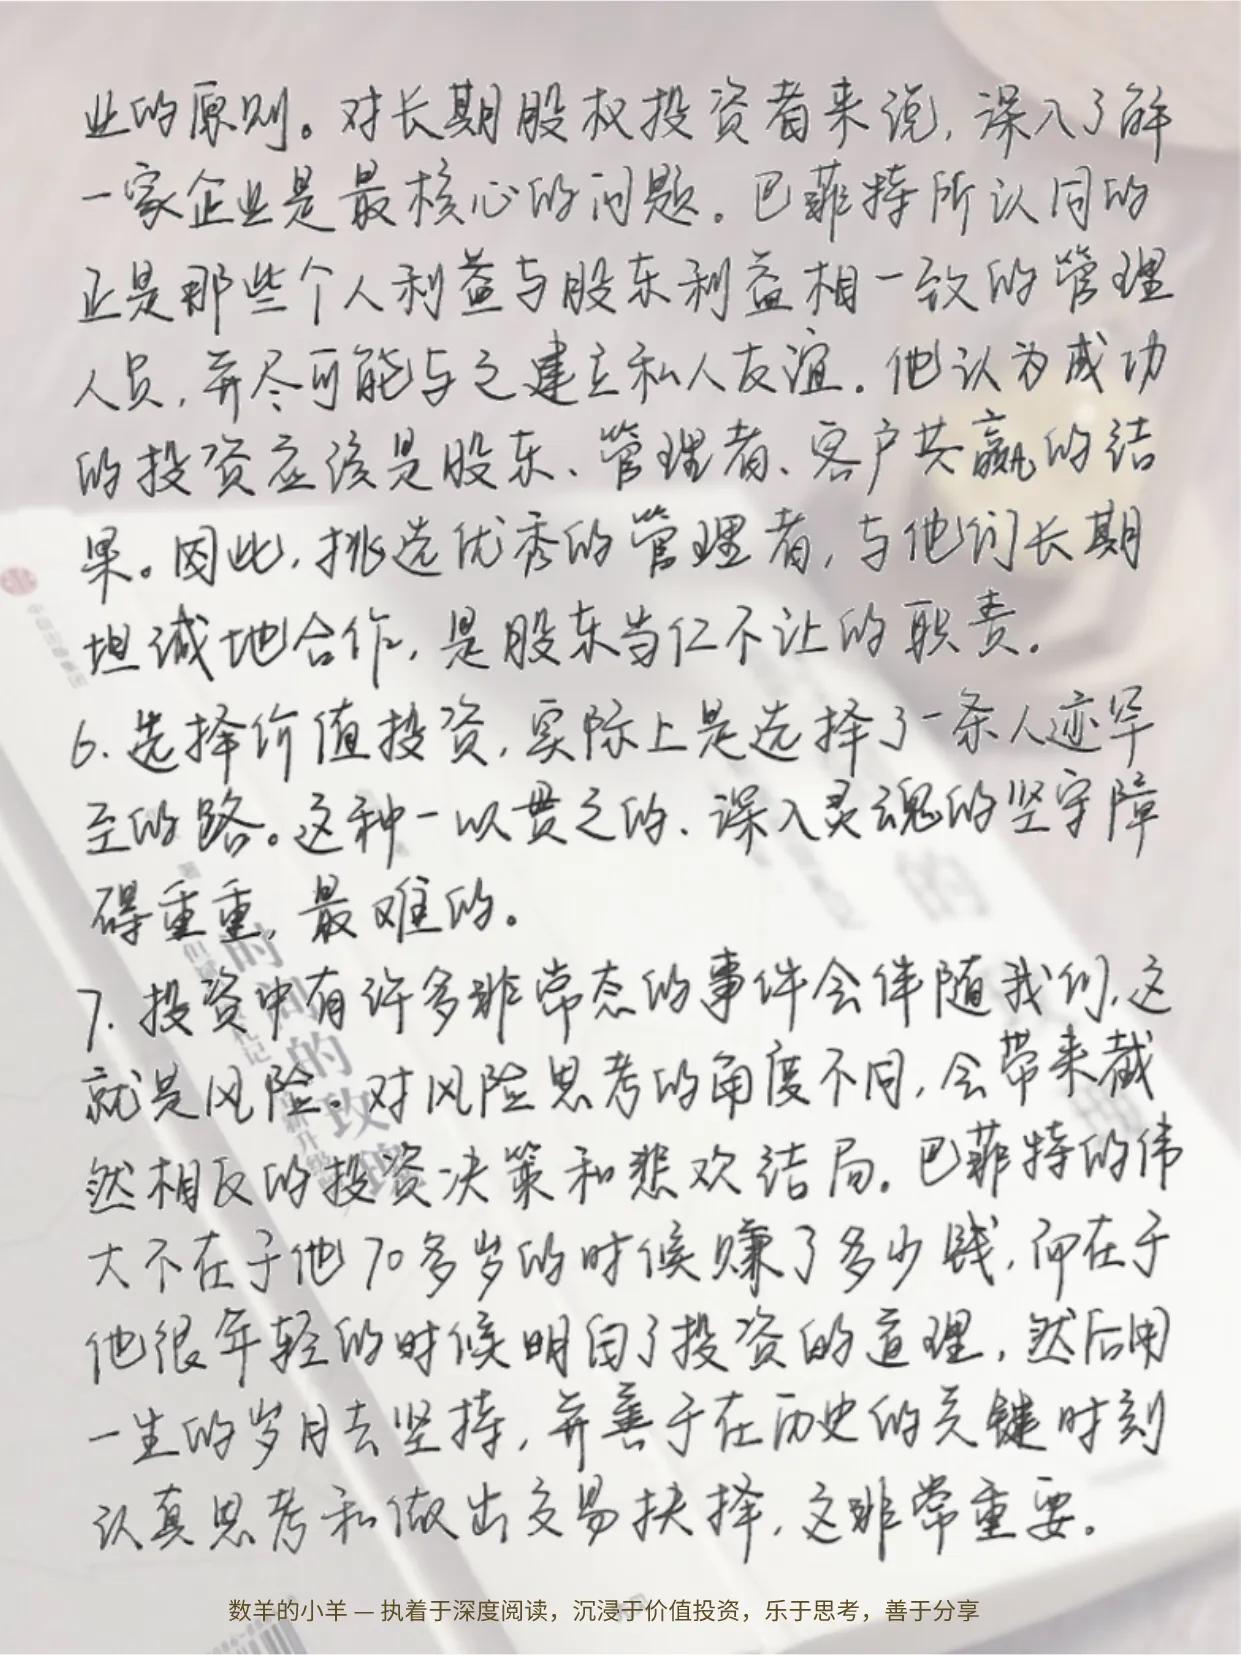 业的原则。对长期股权投资者来说，深入了解
一家企业是最核心的问题。巴菲特所认同的
正是那些个人利益与股东利益相一致的管理
人员，并尽可能与之建立私人友谊。他认为成功
的投资应该是股东、管理者、客户共赢的结
果。因此，挑选优秀的管理者，与他们长期
坦诚地合作，是股东当仁不让的职责。
6. 选择价值投资，实际上是选择了一条人迹罕
至的路。这种一以贯之的、深入灵魂的坚守障
碍重重，最难的。
7. 投资中有许多非常态的事件会伴随我们，这
就是风险。对风险思考的角度不同，会带来截
然相反的投资决策和悲欢结局。巴菲特的伟
大不在于他70多岁的时候赚了多少钱，而在于
他很年轻的时候明白了投资的道理，然后用
一生的岁月去坚持，并善于在历史的关键时刻
认真思考和做出交易抉择，这非常重要。
时间的玫瑰
数羊的小羊 — 执着于深度阅读，沉浸于价值投资，乐于思考，善于分享